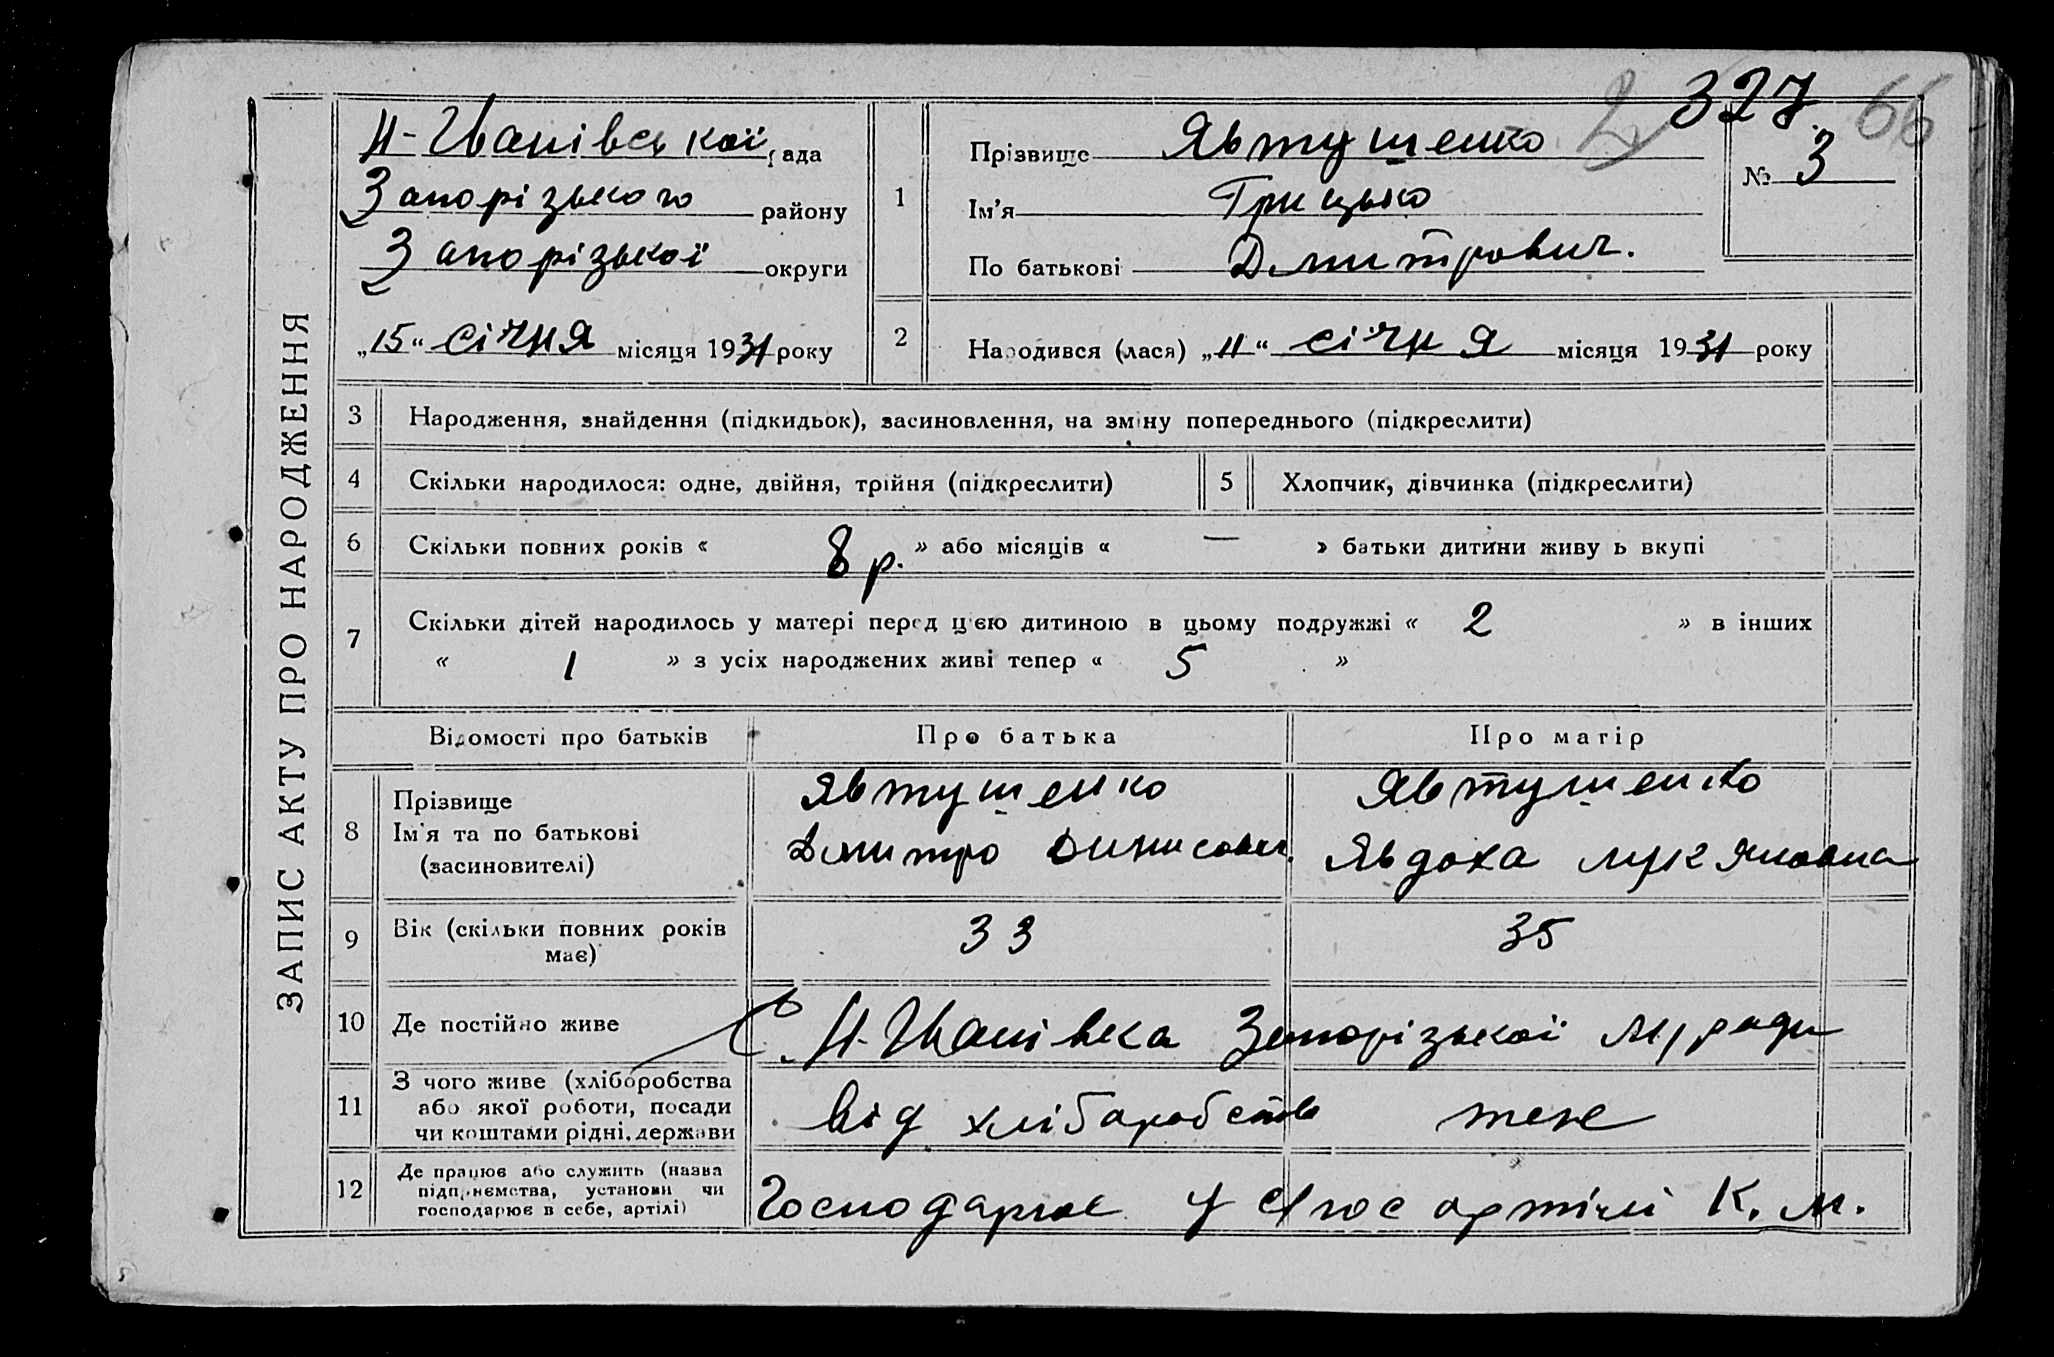 327. 66
ЗАПИС АКТУ ПРО НАРОДЖЕННЯ
Н-Іванівської рада
Запорізького району
Запорізької округи
„15“ січня місяця 1931 року
1
Прізвище Явтушенко
Ім'я Грицько
По батькові Дмитрович.
№ 3
2
Народився (лася) „11“ січня місяця 1931 року
3 Народження, знайдення (підкидьок), засиновлення, на зміну попереднього (підкреслити)
4 Скільки народилося: одне, двійня, трійня (підкреслити) 5 Хлопчик, дівчинка (підкреслити)
6 Скільки повних років « 8 р. » або місяців « — » батьки дитини живу ь вкупі
7 Скільки дітей народилось у матері перед цією дитиною в цьому подружжі « 2 » в інших
« 1 » з усіх народжених живі тепер « 5 »
Відомості про батьків Про батька Про матір
8 Прізвище Явтушенко Явтушенко
Ім'я та по батькові Дмитро Динисович. Явдоха Лук'яновна
(засиновителі)
9 Вік (скільки повних років 33 35
має)
10 Де постійно живе С. Н-Іванівка Запорізької м/ради
11 З чого живе (хліборобства
або якої роботи, посади від хліборобства теж
чи коштами рідні, держави
12 Де працює або служить (назва
підприємства, установи чи Господарює у артілі К. М.
господарює в себе, артілі)